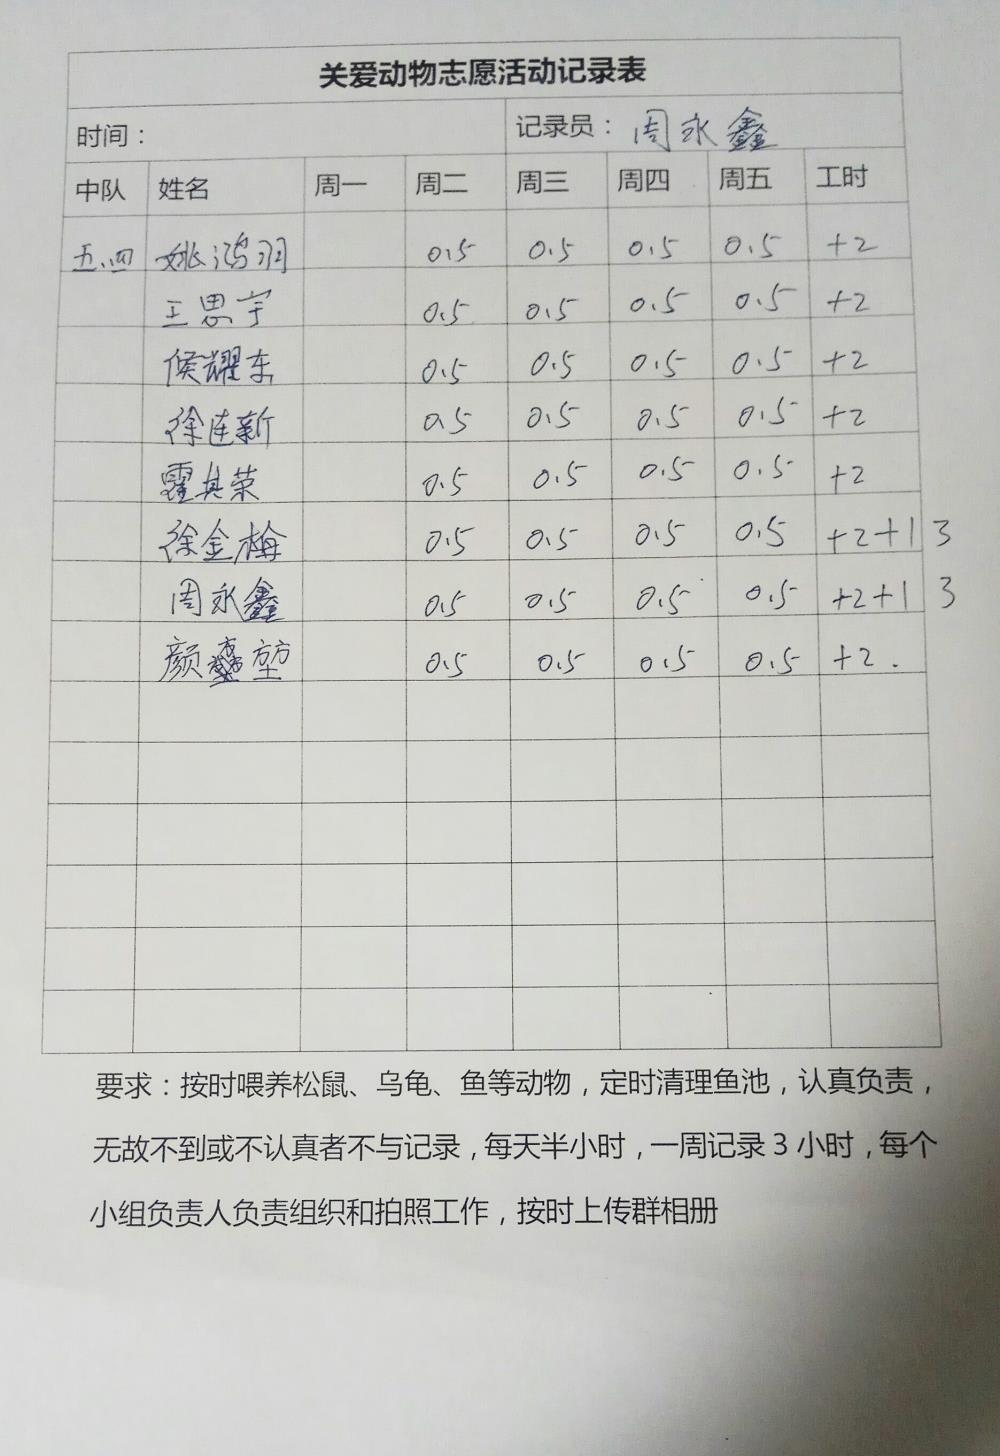 关爱动物志愿活动记录表
时间： 记录员：周永鑫
中队 姓名 周一 周二 周三 周四 周五 工时
五.四 姚鸿羽 0.5 0.5 0.5 0.5 +2
王思宇 0.5 0.5 0.5 0.5 +2
候耀东 0.5 0.5 0.5 0.5 +2
徐连新 0.5 0.5 0.5 0.5 +2
霍其荣 0.5 0.5 0.5 0.5 +2
徐金梅 0.5 0.5 0.5 0.5 +2+1 3
周永鑫 0.5 0.5 0.5 0.5 +2+1 3
颜 0.5 0.5 0.5 0.5 +2.
要求：按时喂养松鼠、乌龟、鱼等动物，定时清理鱼池，认真负责，
无故不到或不认真者不与记录，每天半小时，一周记录3小时，每个
小组负责人负责组织和拍照工作，按时上传群相册